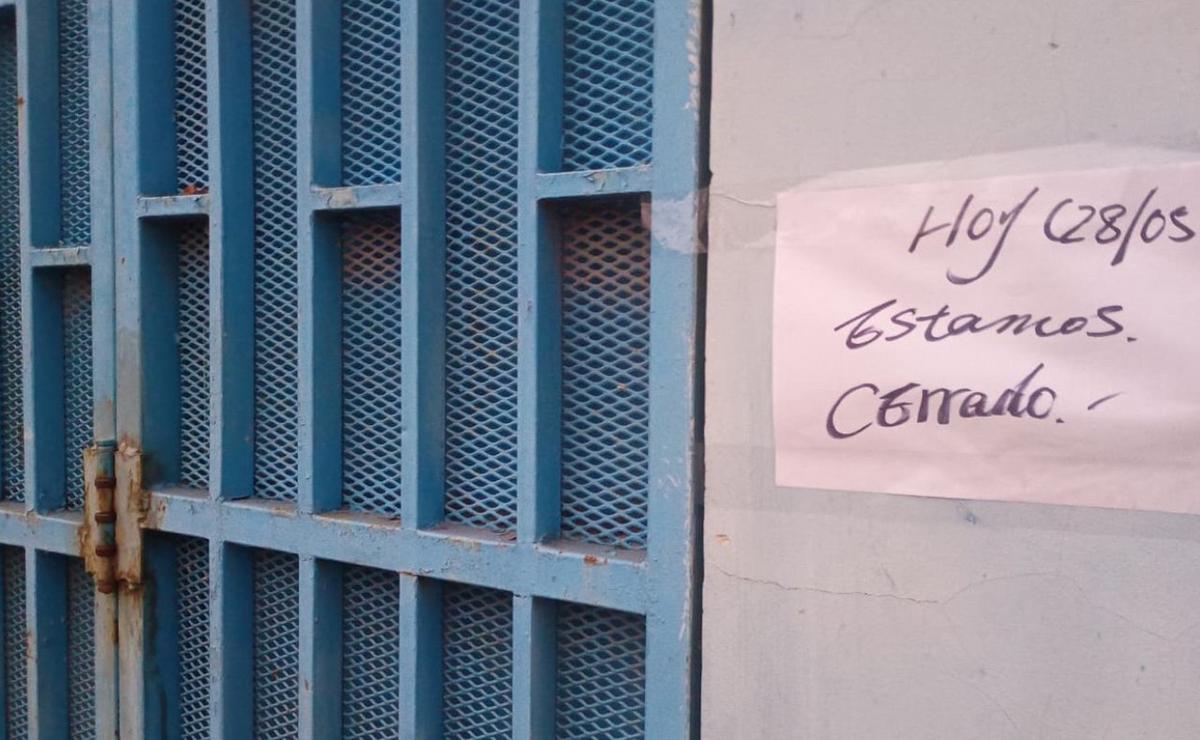 Hoy (28/05
Estamos.
Cerrado. -